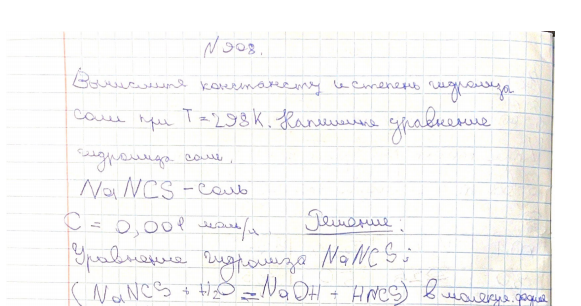 N 908.
Вычислите константу и степень гидролиза
соли при T = 298K. Напишите уравнение
гидролиза соли.
NaNCS - соль
C = 0,001 моль/л Решение:
Уравнение гидролиза NaNCS:
( NaNCS + H₂O = NaOH + HNCS) в молекул. форме